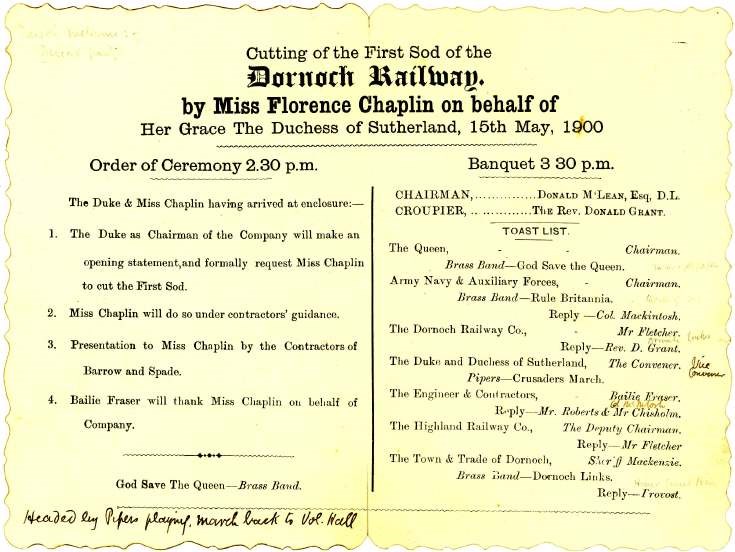 Cutting of the First Sod of the
Dornoch Railway.
by Miss Florence Chaplin on behalf of
Her Grace The Duchess of Sutherland, 15th May, 1900
Order of Ceremony 2.30 p.m.
The Duke & Miss Chaplin having arrived at enclosure:—
1. The Duke as Chairman of the Company will make an
opening statement, and formally request Miss Chaplin
to cut the First Sod.
2. Miss Chaplin will do so under contractors' guidance.
3. Presentation to Miss Chaplin by the Contractors of
Barrow and Spade.
4. Bailie Fraser will thank Miss Chaplin on behalf of
Company.
God Save The Queen—Brass Band.
Headed by Pipers playing, march back to Vol. Hall
Banquet 3 30 p.m.
CHAIRMAN,...............DONALD M'LEAN, Esq, D.L.
CROUPIER, ...............THE REV. DONALD GRANT.
TOAST LIST.
The Queen, - - Chairman.
Brass Band—God Save the Queen.
Army Navy & Auxiliary Forces, - Chairman.
Brass Band—Rule Britannia.
Reply—Col. Mackintosh.
The Dornoch Railway Co., - Mr Fletcher.
Reply—Rev. D. Grant.
The Duke and Duchess of Sutherland, The Convener. Vice Convener
Pipers—Crusaders March.
The Engineer & Contractors, Bailie Fraser.
Reply—Mr. Roberts & Mr Chisholm.
The Highland Railway Co., The Deputy Chairman.
Reply—Mr Fletcher
The Town & Trade of Dornoch, Sheriff Mackenzie.
Brass Band—Dornoch Links.
Reply—Provost.